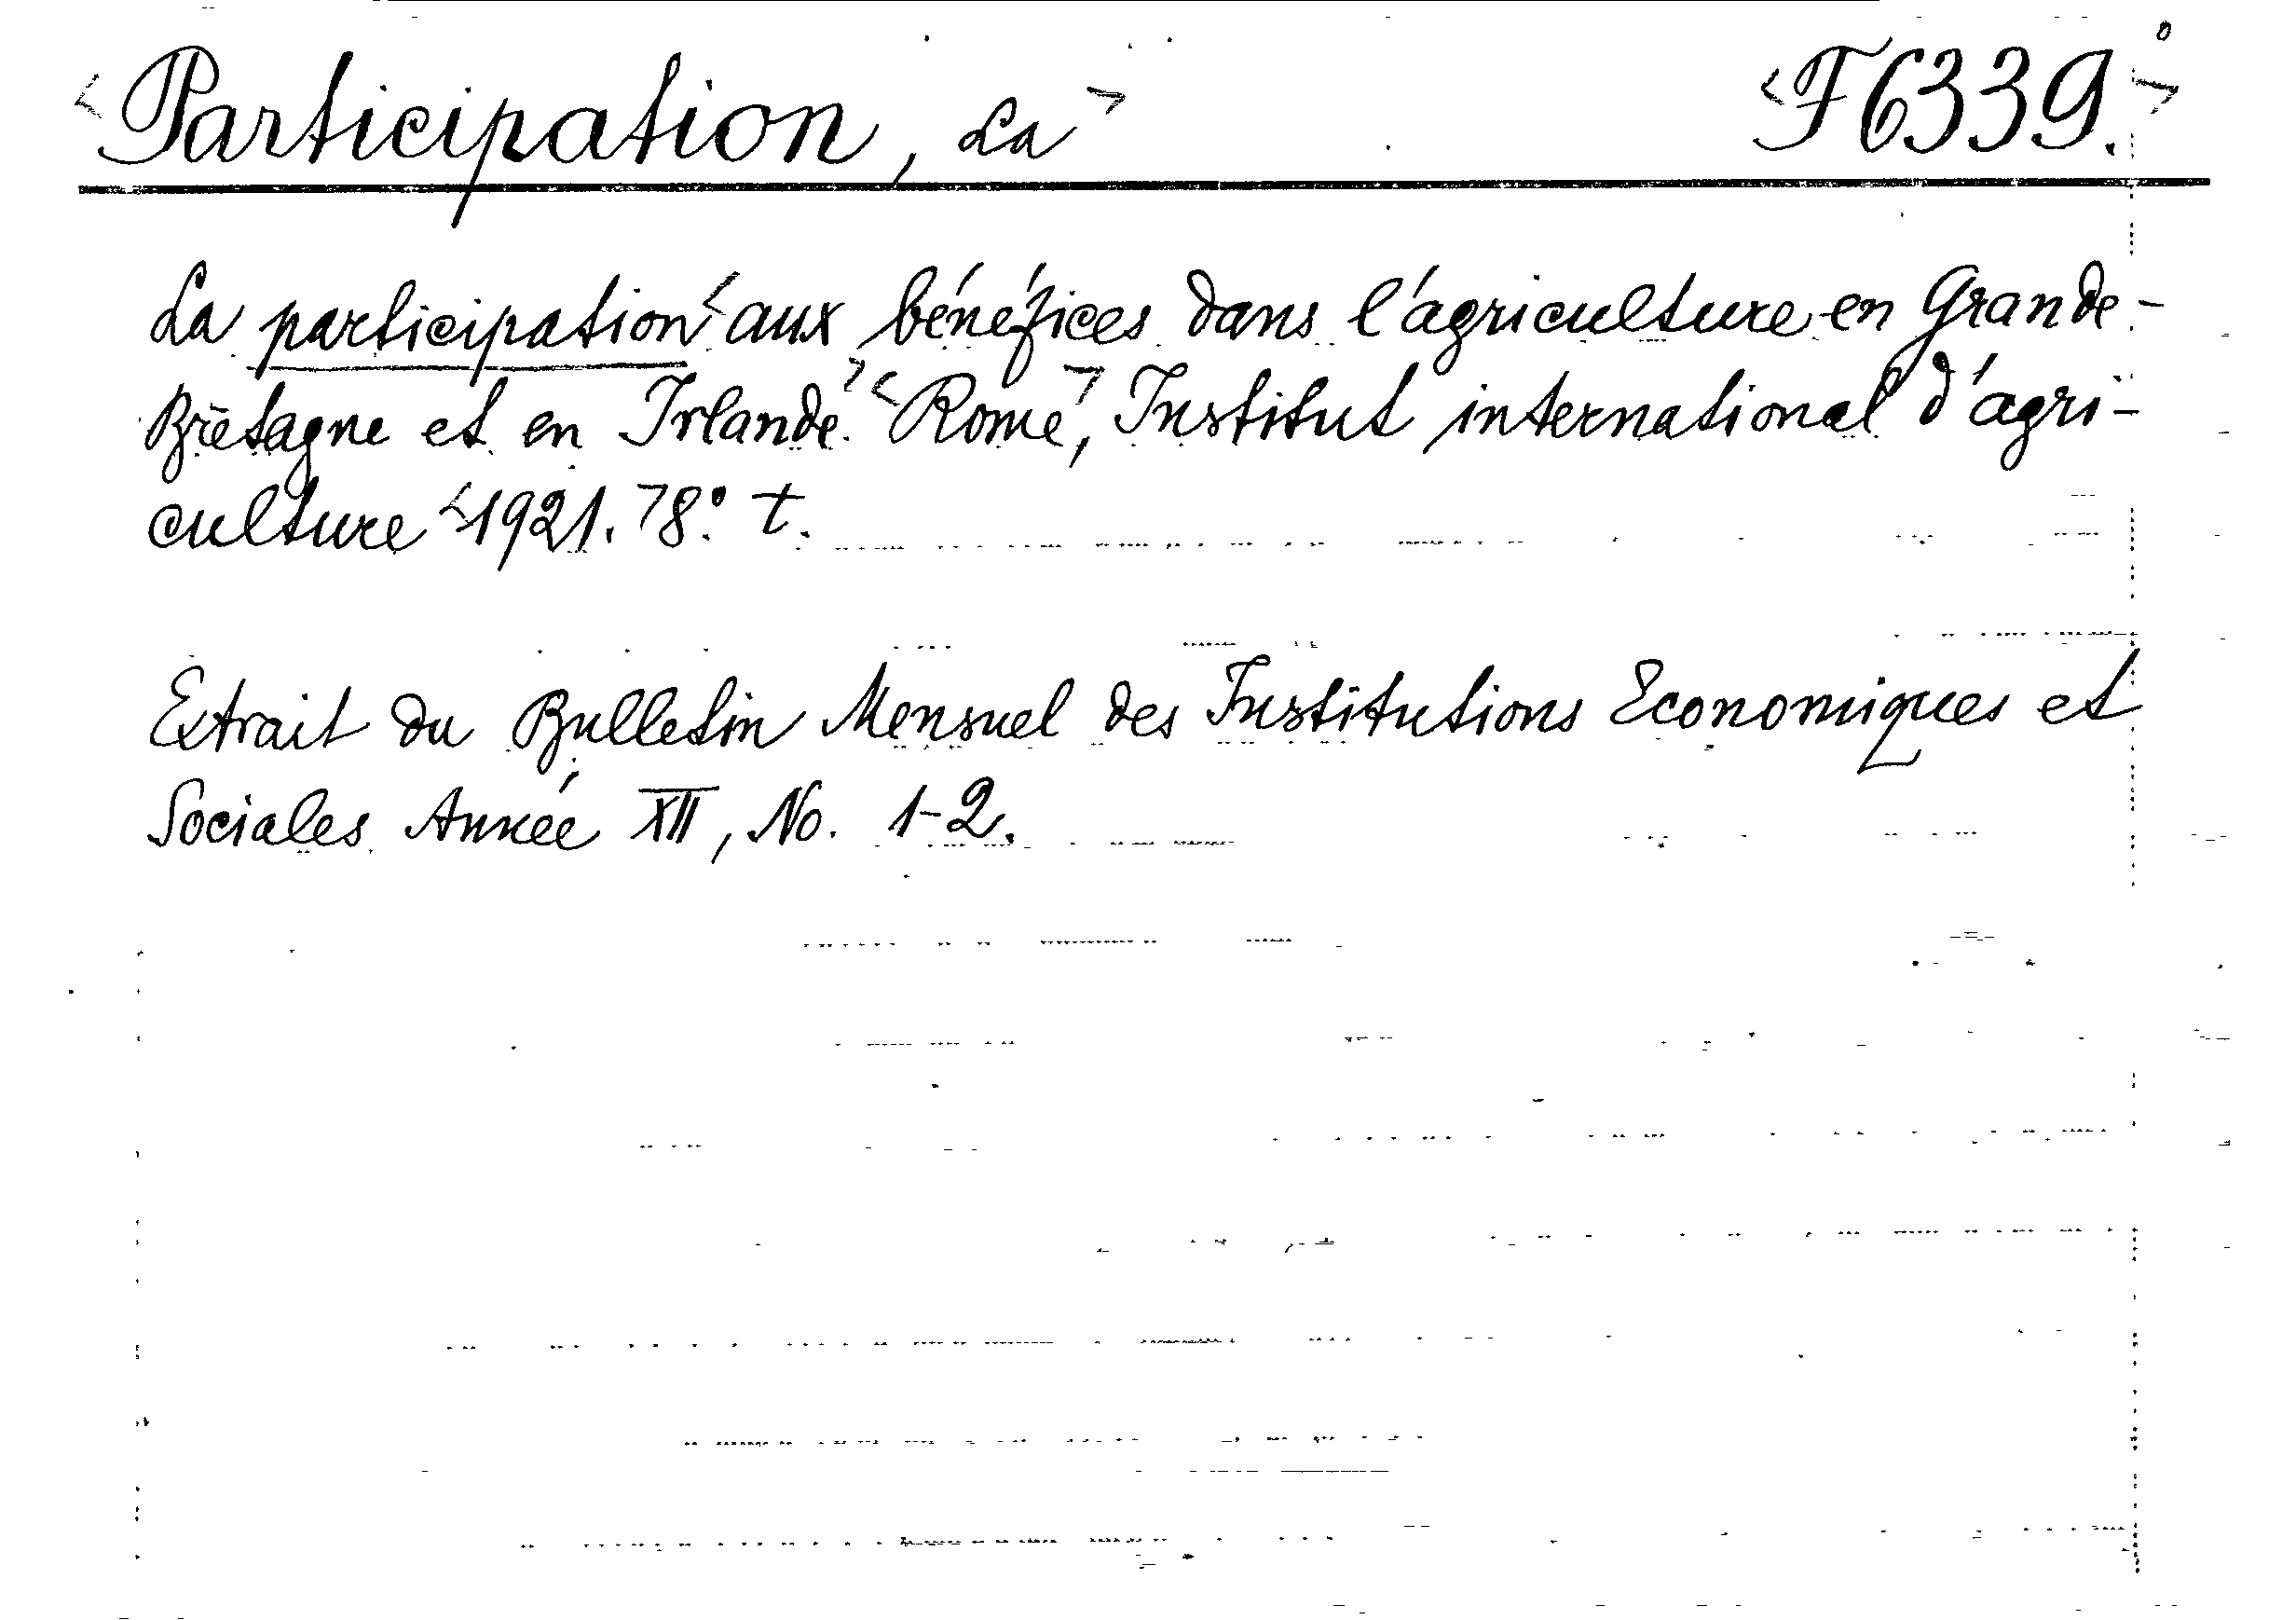 <Participation, La> <F6339.>
La participation <aux bénéfices dans l'agriculture en Grande-
Bretagne et en Irlande.> <Rome>, Institut international d'agri-
culture <1921.> 8:o t.
Extrait du Bulletin Mensuel des Institutions Economiques et
Sociales Année XII, No. 1-2.